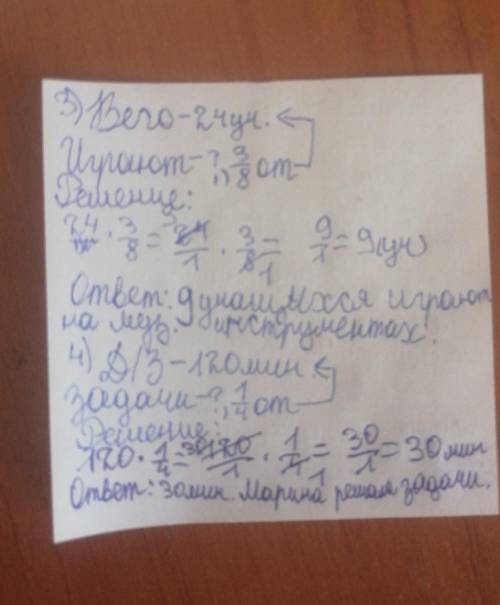 3) Всего-24уч.
Играют-?, 3/8 от
Решение:
24 · 3/8 = 24/1 · 3/8 = 9/1 = 9уч
Ответ: 9 учащихся играют
на муз. инструментах.
4) Д/З-120мин
задачи-?, 1/4 от
Решение:
120 · 1/4 = 30 120/1 · 1/4 1 = 30/1 = 30мин
Ответ: 30мин. Марина решала задачи.